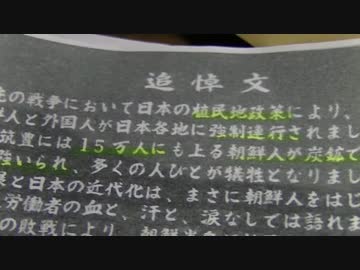 追悼文
の戦争において日本の植民地政策により、
鮮人と外国人が日本各地に強制連行されまし
筑豊には15万人にも上る朝鮮人が炭鉱で
強いられ、多くの人びとが犠牲となりまし
展と日本の近代化は、まさに朝鮮人をはじ
労働者の血と、汗と、涙なしでは語れま
の敗戦により、朝鮮